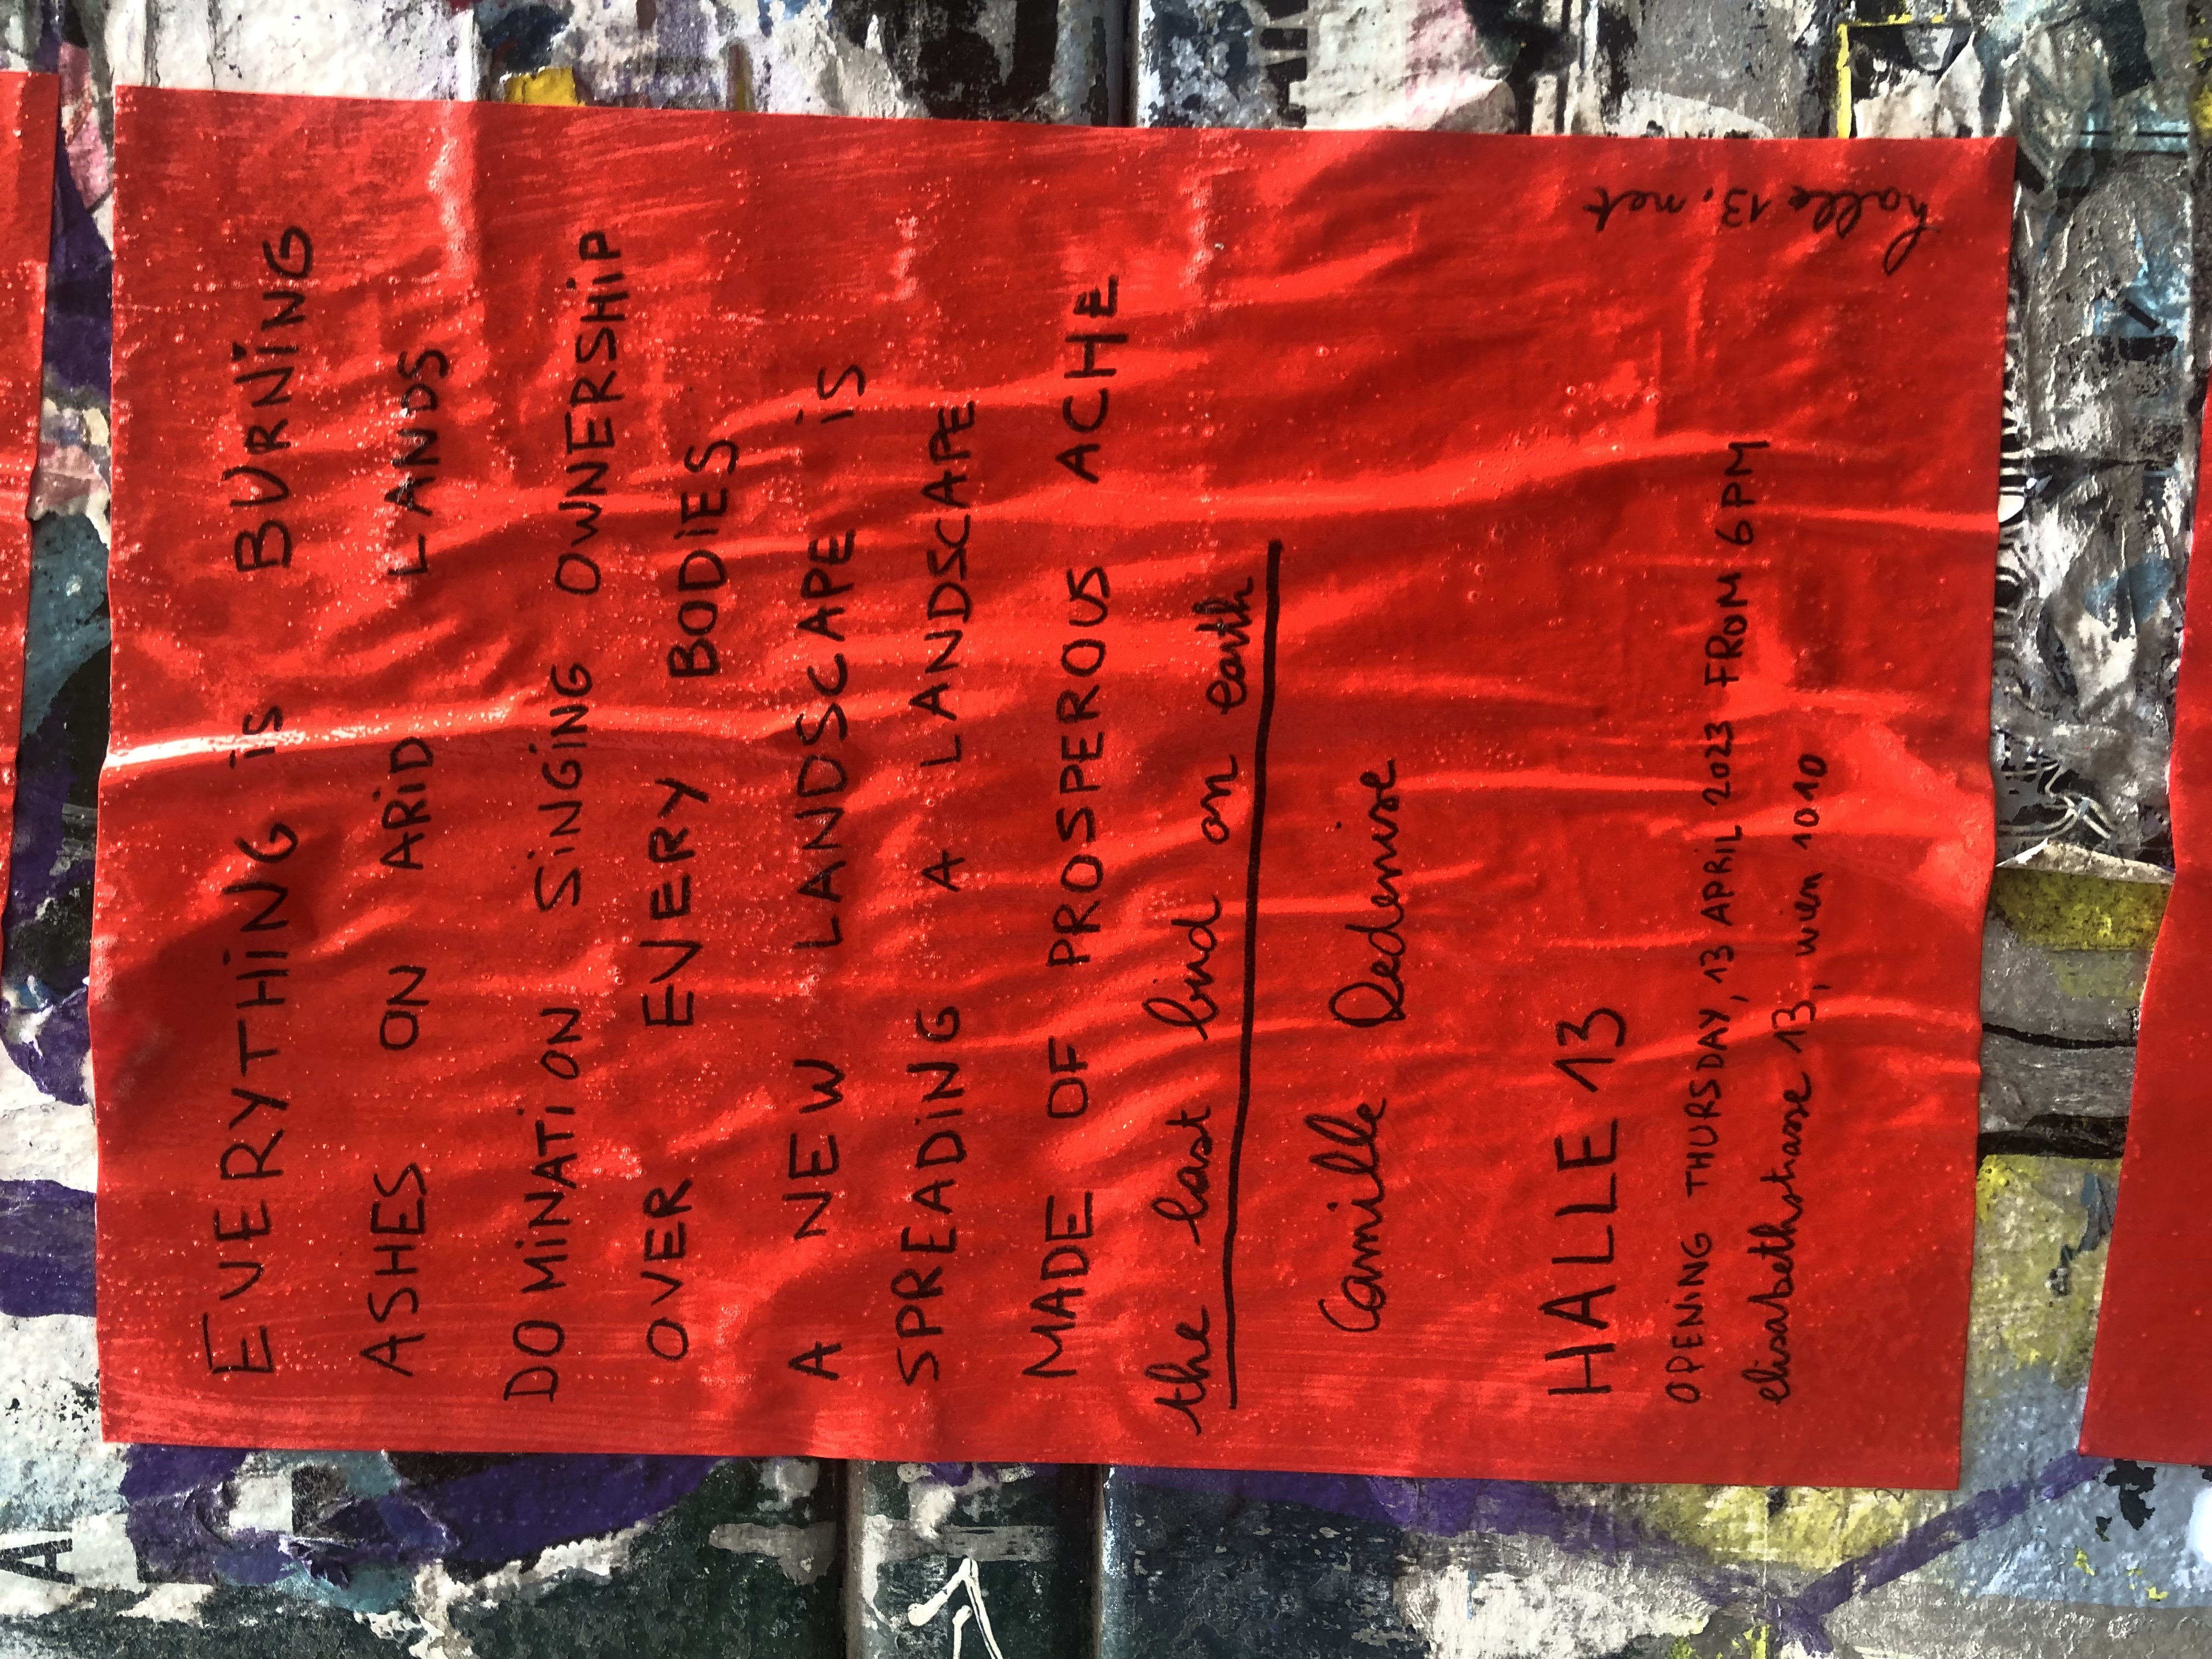 EVERYTHING is BURNiNG
ASHES ON ARiD LANDS
DOMiNATiON SiNGiNG OWNERSHiP
OVER EVERY BODiES
A NEW LANDSCAPE iS
SPREADiNG A LANDSCAPE
MADE OF PROSPEROUS ACHE
the last bird on earth
Camille Ledemise
HALLE 13
OPENiNG THURSDAY, 13 APRiL 2023 FROM 6PM
elisabethstrasse 13, wien 1010
halle 13.net